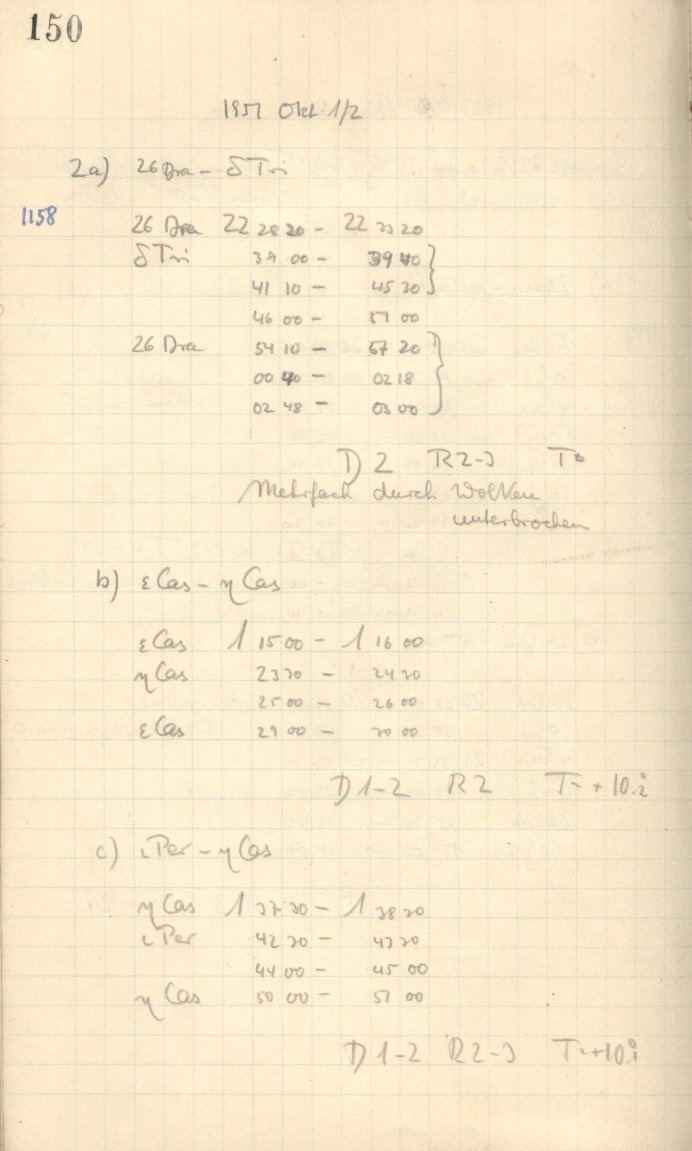 150
1951 Okt 1/2
2a) 26 Dra - δ Tri
1158 26 Dra 22 28 20 - 22 33 20
δ Tri 39 00 - 39 40
41 10 - 45 30
46 00 - 51 00
26 Dra 54 10 - 57 20
00 40 - 02 18
02 48 - 03 00
D 2 R 2-3 T=
Mehrfach durch Wolken
unterbrochen
b) ε Cas - η Cas
ε Cas 1 15 00 - 1 16 00
η Cas 23 30 - 24 30
25 00 - 26 00
ε Cas 29 00 - 30 00
D 1-2 R 2 T= +10.
c) ι Per - η Cas
η Cas 1 37 30 - 1 38 30
ι Per 42 30 - 43 30
44 00 - 45 00
η Cas 50 00 - 51 00
D 1-2 R 2-3 T= +10.